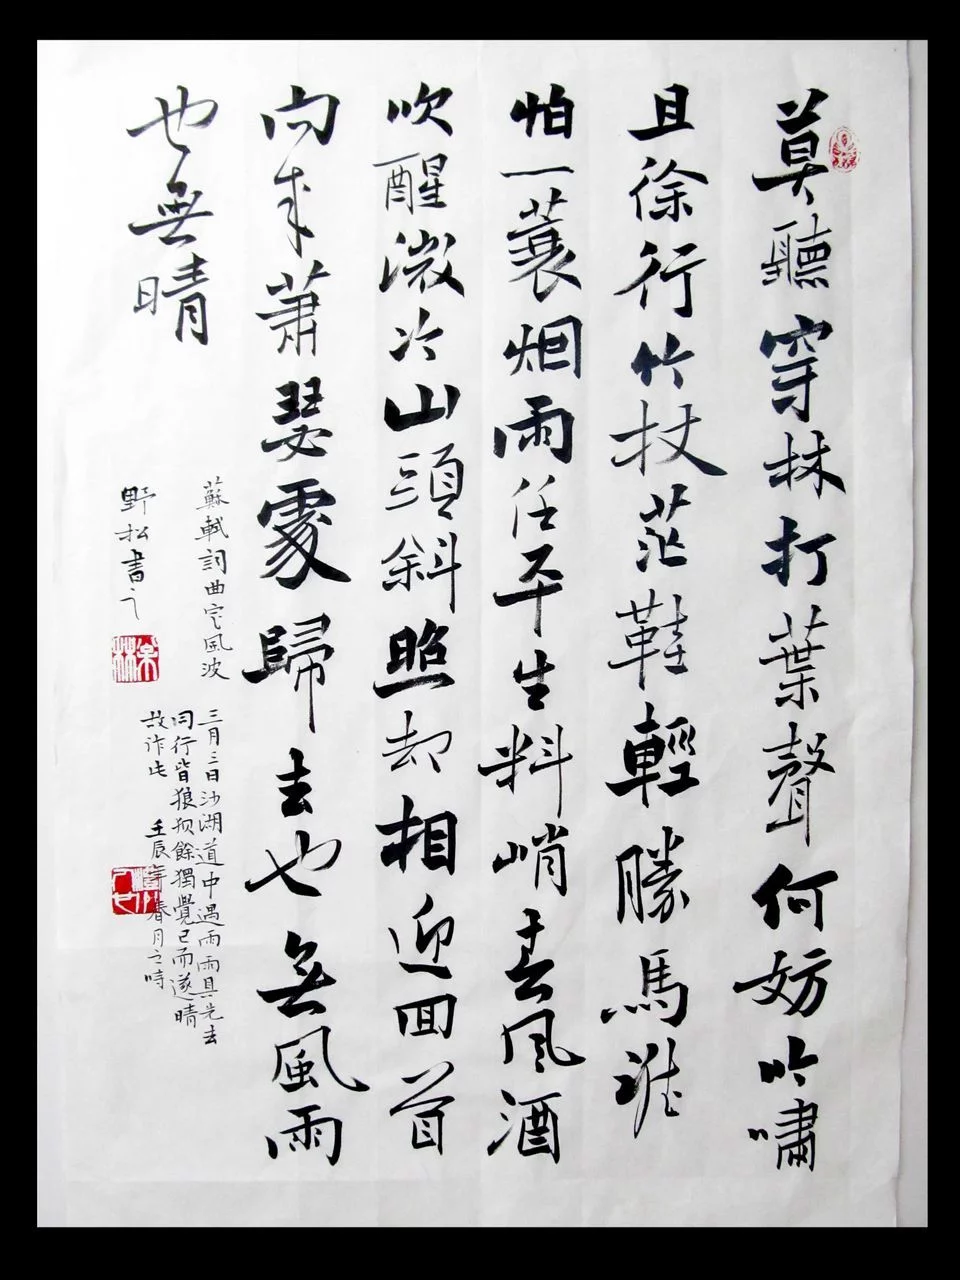 莫聽穿林打葉聲何妨吟嘯
且徐行竹杖茫鞋輕勝馬誰
怕一蓑烟雨任平生料峭春风酒
吹醒微冷山頭斜照却相迎回首
向來蕭瑟處歸去也無風雨
也無晴
蘇軾詞曲定風波
野松書之
三月三日沙湖道中遇雨雨具先去
同行皆狼狽餘獨覺已而遂晴
故作此 壬辰年春月之時